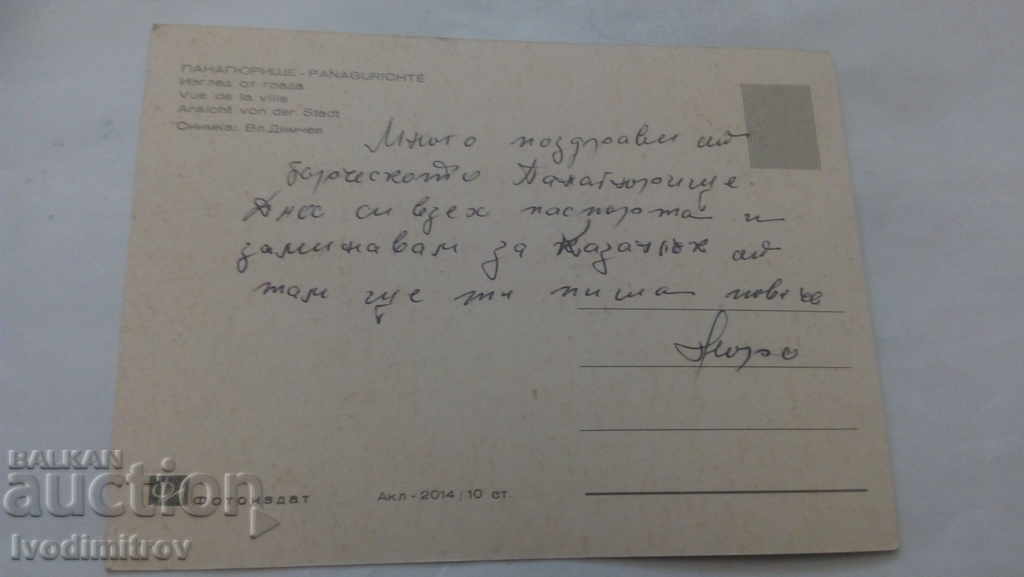 ПАНАГЮРИЩЕ - PANAGURICHTÉ
Изглед от града
Vue de la ville
Ansicht von der Stadt
Снимка: Вл. Димчев
Много поздрави от
борческото Панагюрище.
Днес си взех паспорта и
заминавам за Казанлък от
там ще ти пиша повече
Фотоиздат
Акл - 2014 / 10 ст.
BALKAN
auction
Ivodimitrov